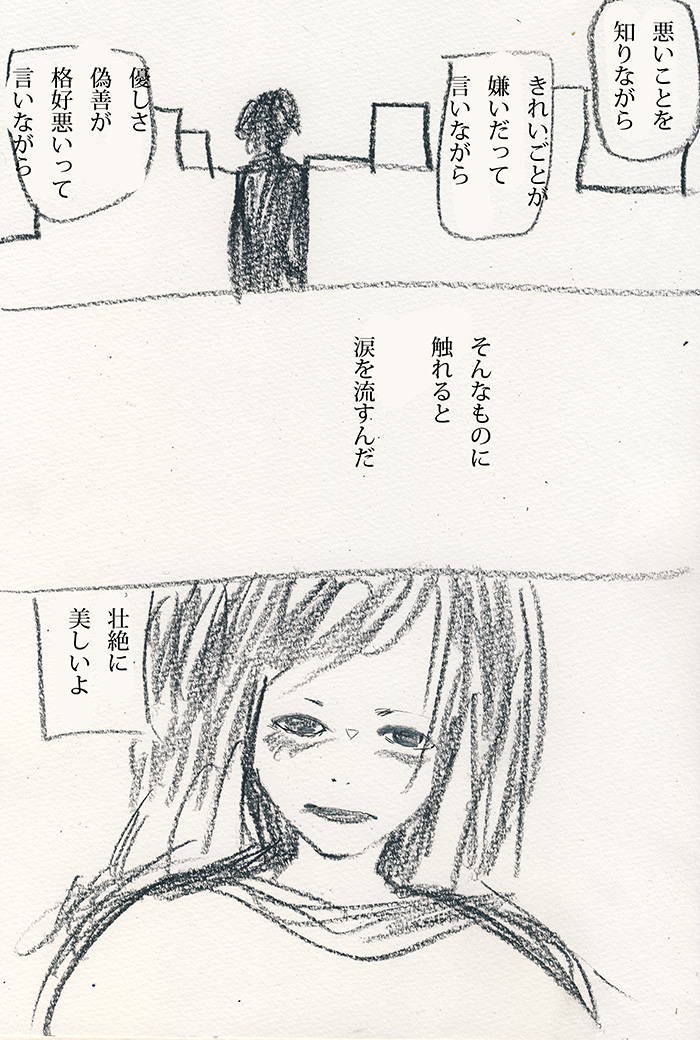 悪いことを
知りながら
きれいごとが
嫌いだって
言いながら
優しさ
偽善が
格好悪いって
言いながら
そんなものに
触れると
涙を流すんだ
壮絶に
美しいよ